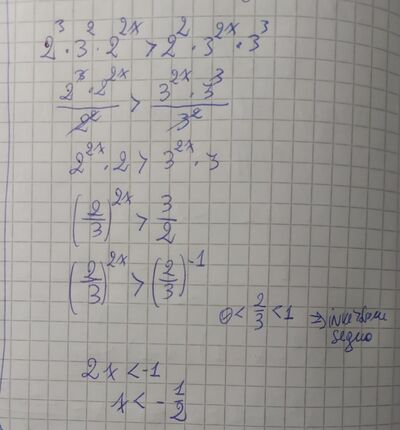 2³ · 3² · 2²ˣ > 2² · 3²ˣ · 3³
2³ · 2²ˣ / 2² > 3²ˣ · 3³ / 3²
2²ˣ · 2 > 3²ˣ · 3
(2/3)²ˣ > 3/2
(2/3)²ˣ > (2/3)⁻¹
0 < 2/3 < 1 ⇒
segno
2x < -1
x < - 1/2